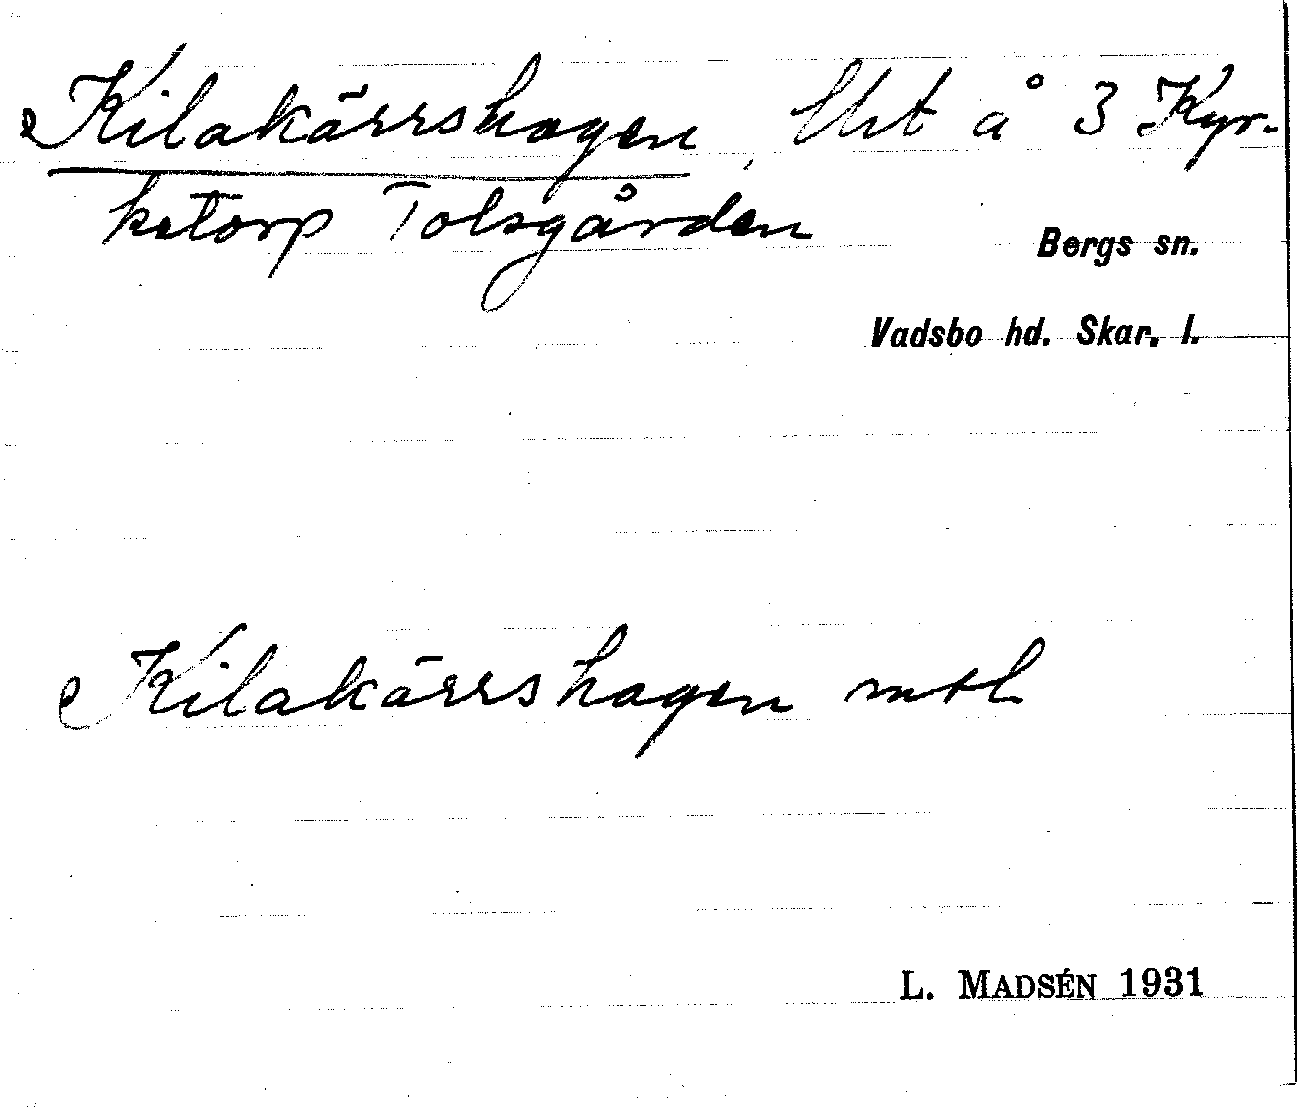 Kilakärrshagen, lht å 3 Kyr-
ketorp Tolsgården
Bergs sn.
Vadsbo hd. Skar. l.
Kilakärrshagen mtl
L. MADSÉN 1931